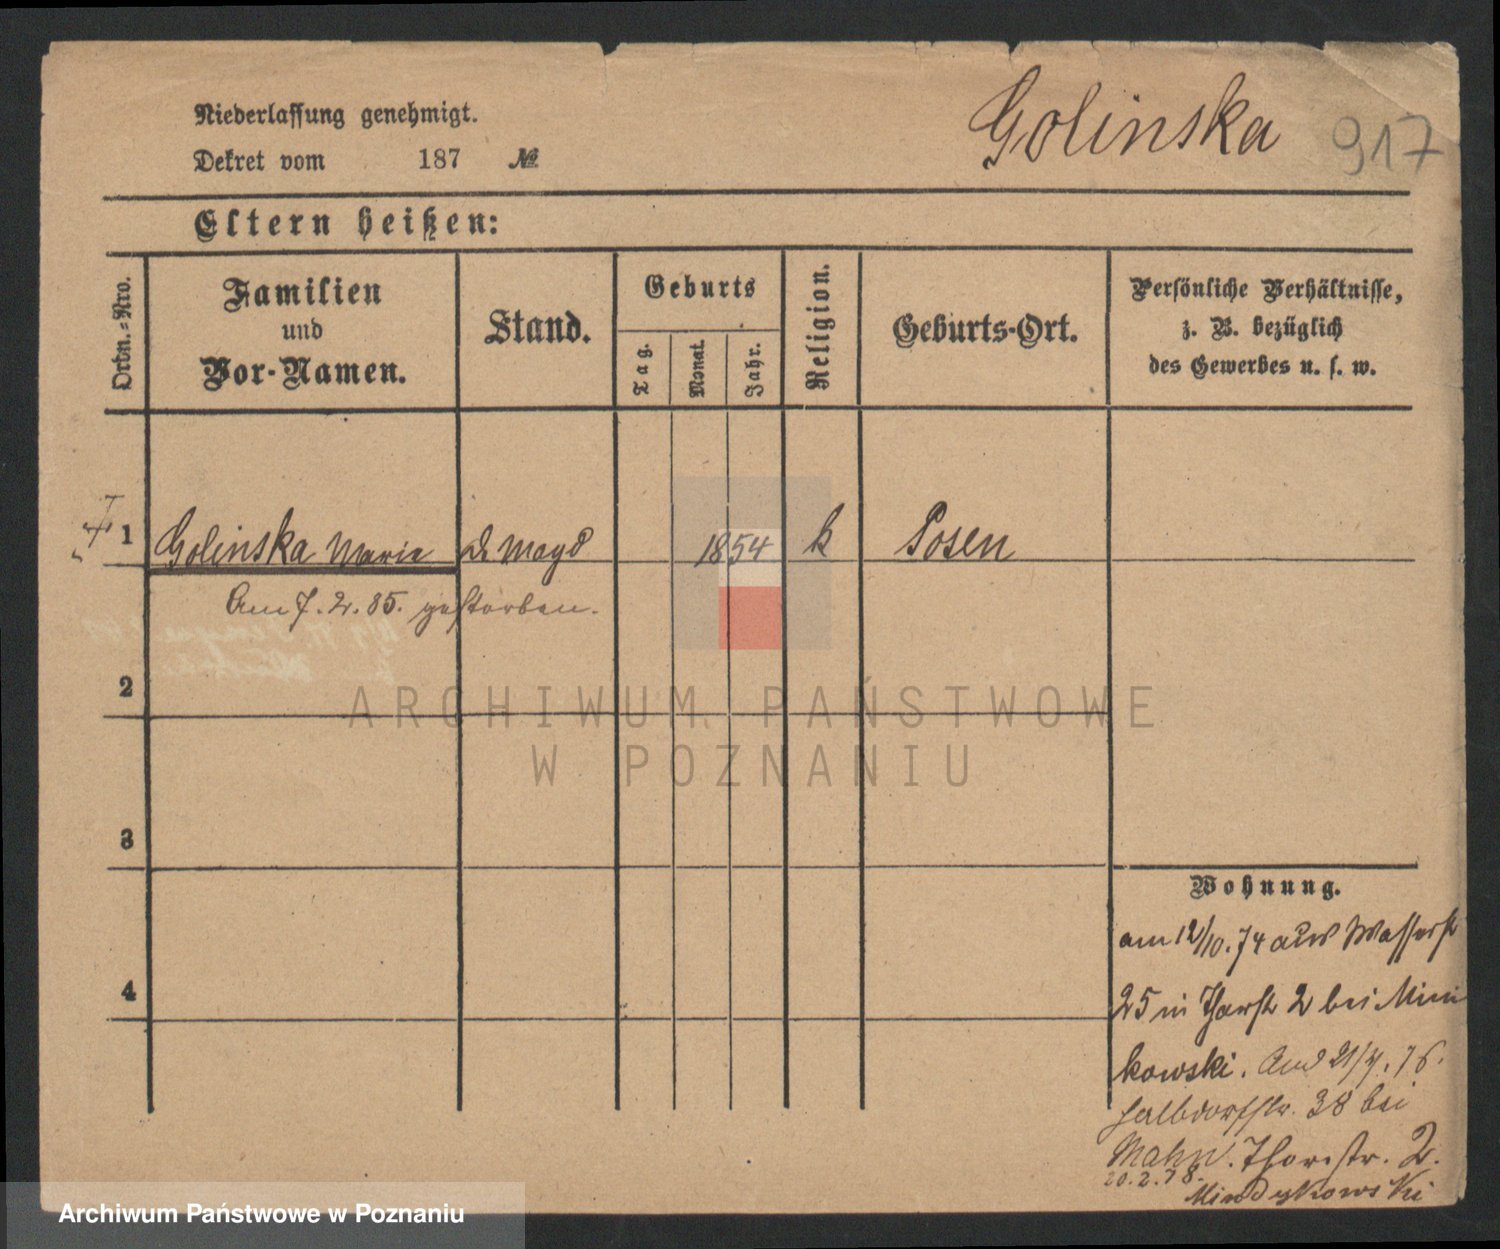 Golinska 917
Niederlassung genehmigt.
Dekret vom 187 №
Eltern heißen:
Ordn.=Nro.
Familien
und
Vor-Namen.
Stand.
Geburts
Tag.
Monat.
Jahr.
Religion.
Geburts-Ort.
Persönliche Verhältnisse,
z. B. bezüglich
des Gewerbes u. s. w.
1 Golinska Marie d Magd 1854 k Posen
Am 7. 2. 85. gestorben.
2
3
4
Wohnung.
am 12/10. 74 aus Wasserst
25 in Thorst 2 bei Mini
kowski. 76.
Halbdorfstr. 38 bei
Mahn. Thorstr. 2.
20.2.78.
Mindykowski
ARCHIWUM PAŃSTWOWE
W POZNANIU
Archiwum Państwowe w Poznaniu